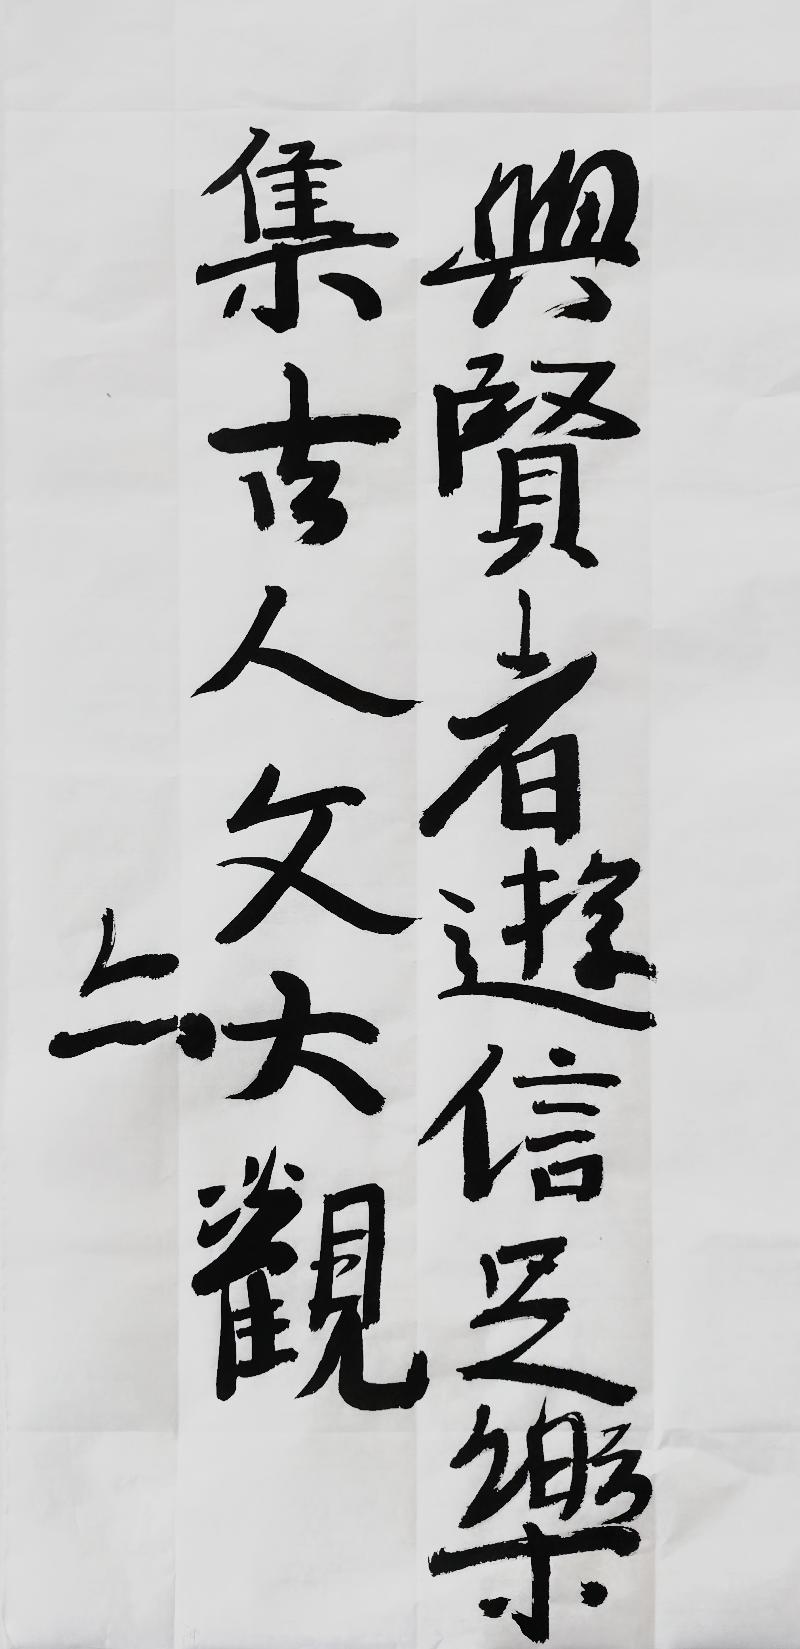 與賢者遊信足樂
集古人文大觀
亦